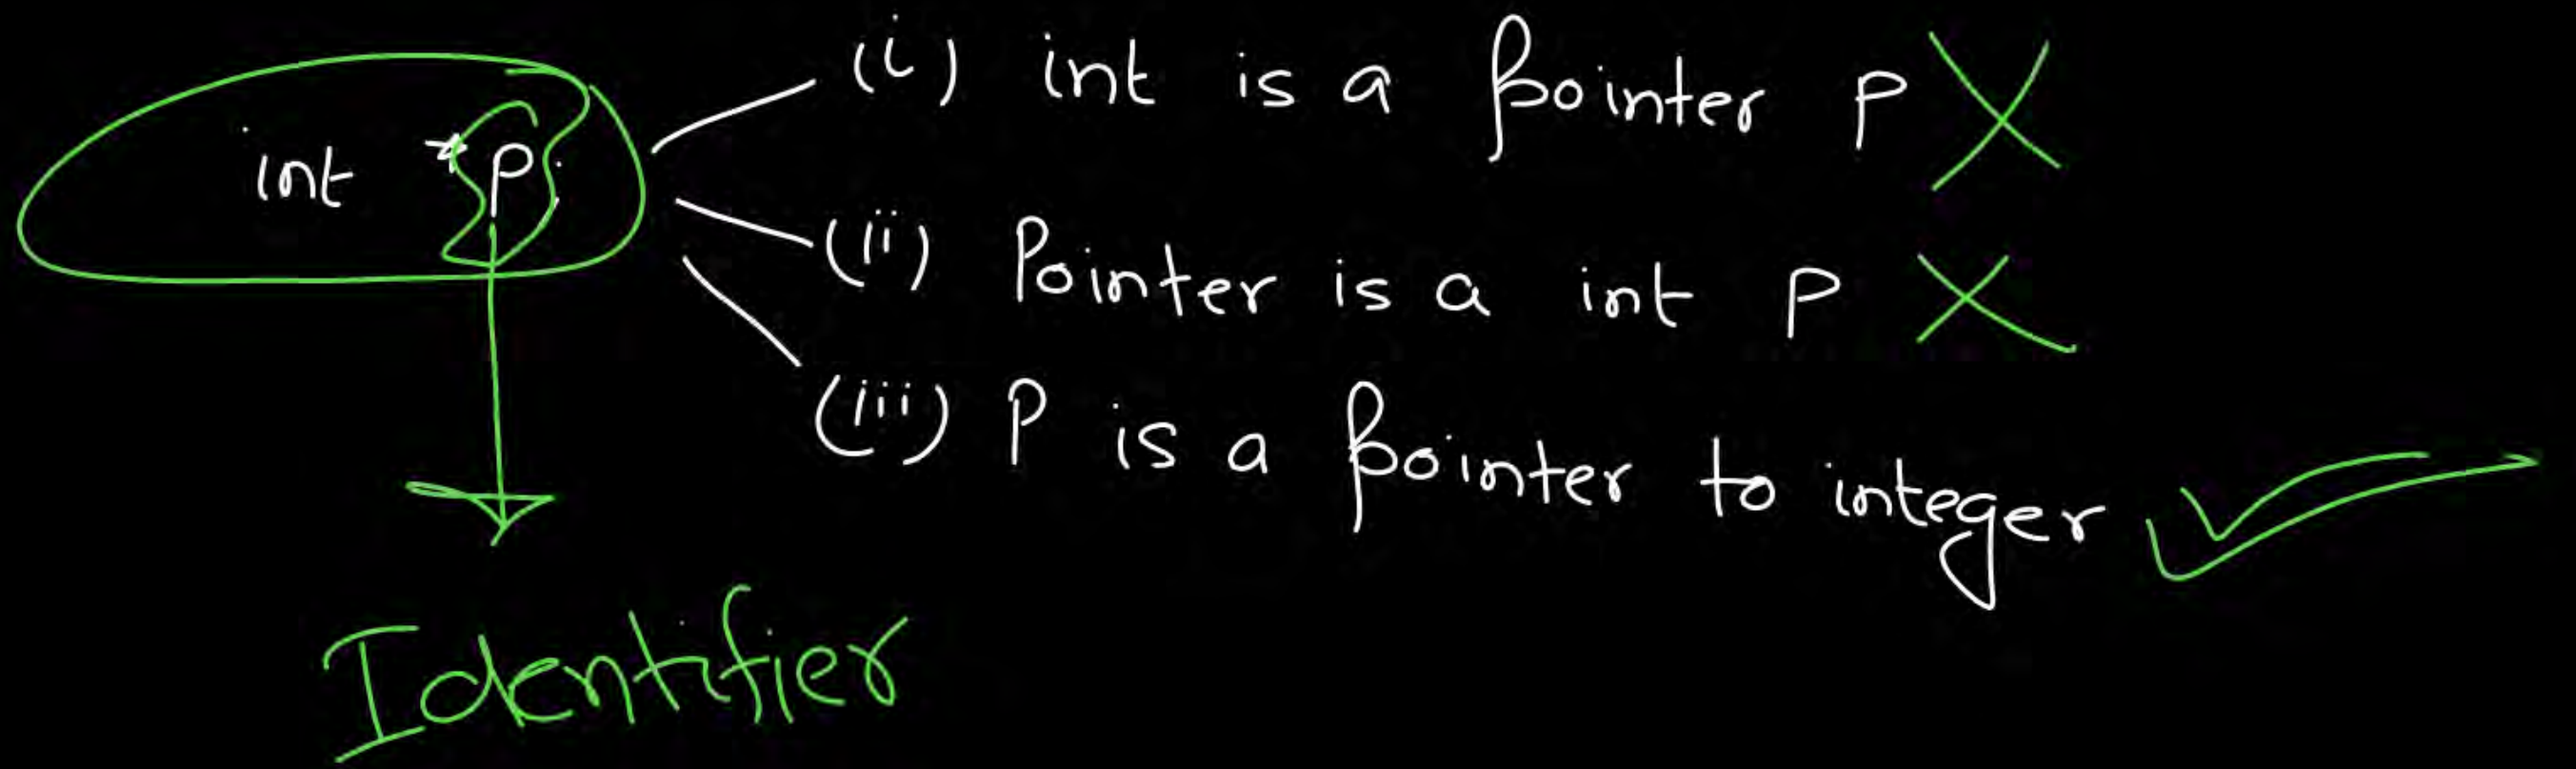 (i) int is a pointer p
int *p;
(ii) Pointer is a int p
(iii) P is a pointer to integer
Identifier